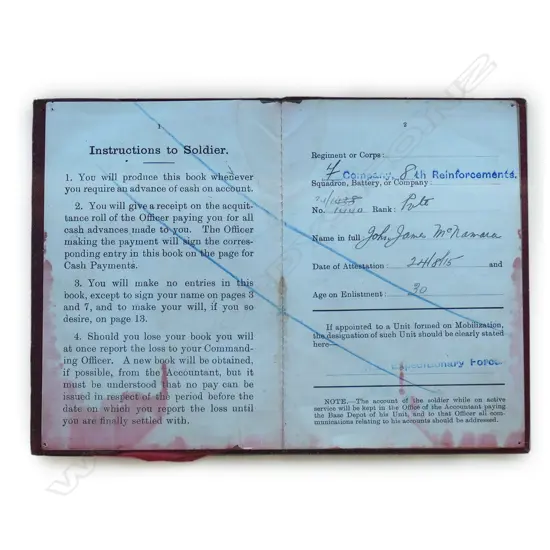 1
Instructions to Soldier.
1. You will produce this book whenever
you require an advance of cash on account.
2. You will give a receipt on the acquit-
tance roll of the Officer paying you for all
cash advances made to you. The Officer
making the payment will sign the corres-
ponding entry in this book on the page for
Cash Payments.
3. You will make no entries in this
book, except to sign your name on pages 3
and 7, and to make your will, if you so
desire, on page 13.
4. Should you lose your book you will
at once report the loss to your Command-
ing Officer. A new book will be obtained,
if possible, from the Accountant, but it
must be understood that no pay can be
issued in respect of the period before the
date on which you report the loss until
you are finally settled with.
2
Regiment or Corps:
4 Company, 8th Reinforcements.
Squadron, Battery, or Company
No. Rank: Pvte
Name in full John James McNamara
Date of Attestation: 24/8/15 and
Age on Enlistment: 30
If appointed to a Unit formed on Mobilization,
the designation of such Unit should be clearly stated
here—
Expeditionary Force
NOTE.—The account of the soldier while on active
service will be kept in the Office of the Accountant paying
the Base Depot of his Unit, and to that Officer all com-
munications relating to his accounts should be addressed.